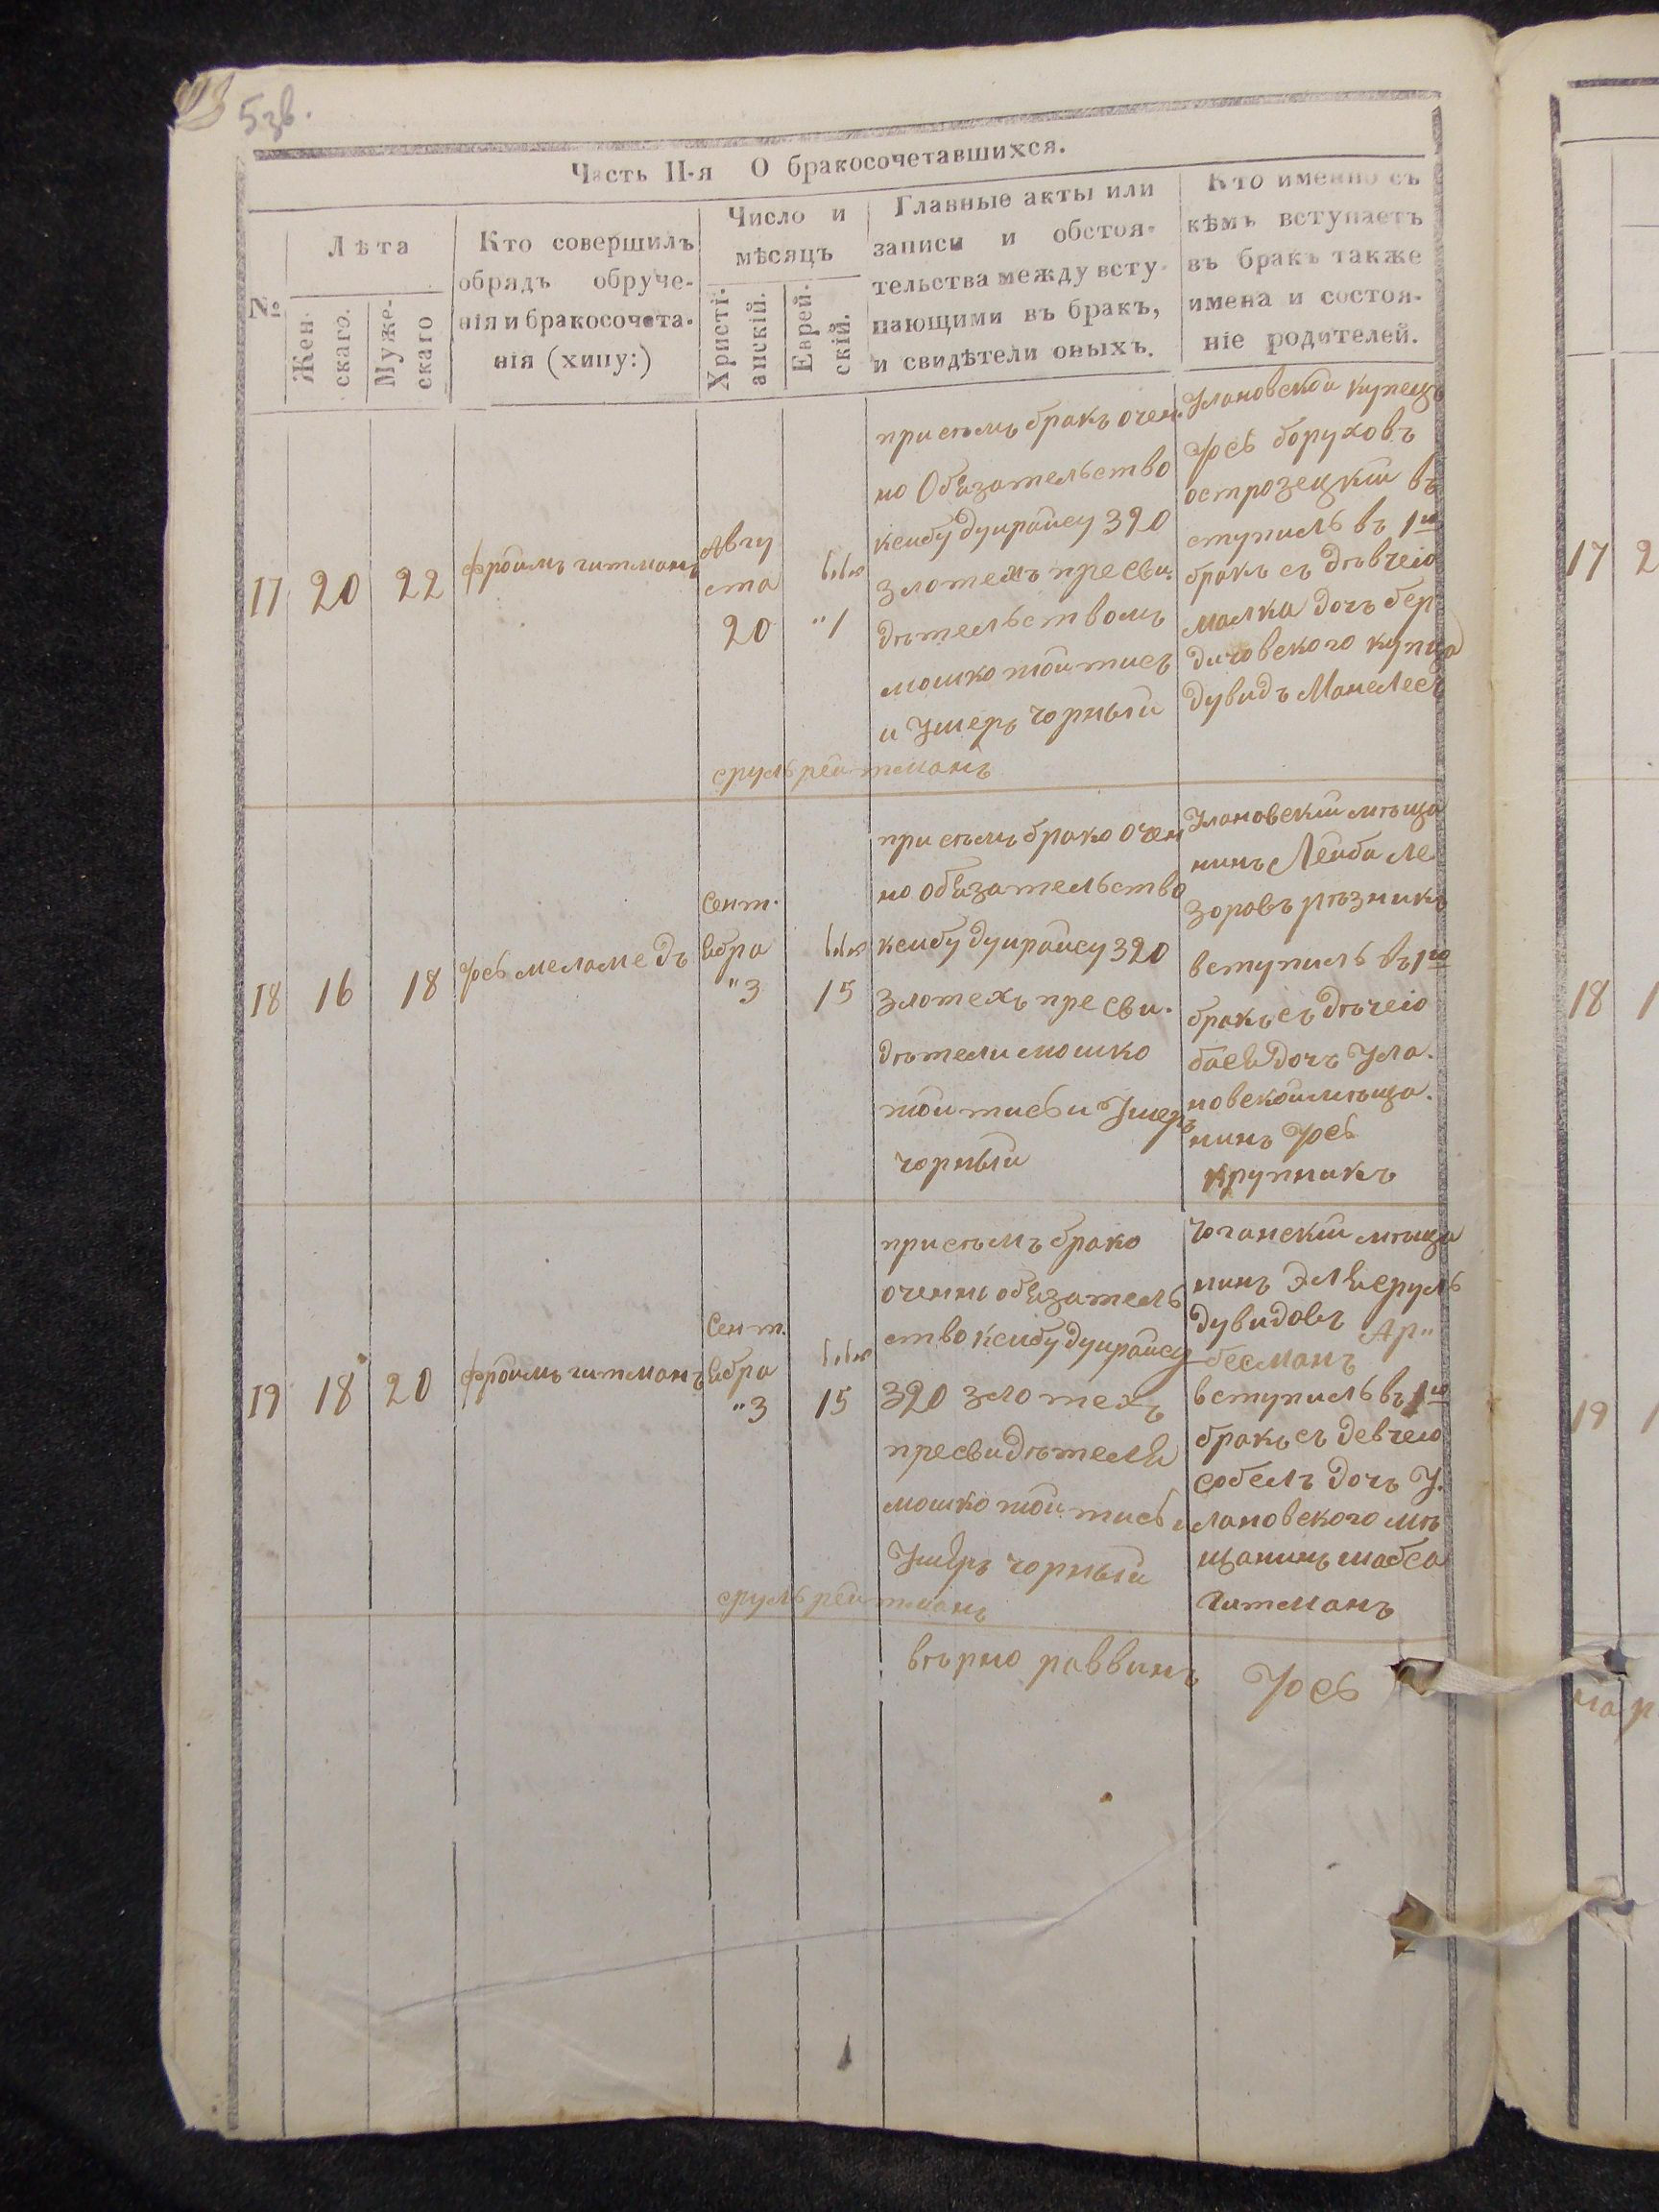 5зв.
Часть II-я О бракосочетавшихся.
№
Лѣта
Жен-
скаго.
Муже-
скаго
Кто совершилъ
обрядъ обруче-
нія и бракосочета-
нія (хипу:)
Число и
мѣсяцъ
Христі-
анскій.
Еврей-
скій.
Главные акты или
записи и обстоя-
тельства между всту-
пающими въ бракъ,
и свидѣтели оныхъ.
Кто именно съ
кѣмъ вступаетъ
въ бракъ также
имена и состоя-
ніе родителей.
17 20 22
фроимъ гитманъ
Авгу
ста
20
"1
присѣмъ бракъ очен
но Обязательство
ксибу дуирайсу 390
злотехъ пресви-
дѣтельствомъ
мошко тойтисъ
и Ушеръ чорный
Улановской купецъ
Іось боруховъ
острозецкій въ
ступилъ въ 1й
бракъ съ дѣвчею
малка дочъ бер
дичовского купца
дувидъ Манелесъ
сруль рейтманъ
18 16 18
Іось меламедъ
Сент-
ебра
"3
15
присѣмъ брако очен
но обязательство
ксибу дуирайсу 390
злотехъ пресви-
дѣтели мошко
тойтись и Ушеръ
чорный
Улановскій мѣща
нинъ Лейба Ле
зоровъ рѣзникъ
вступилъ въ 1й
бракъ съ дѣчею
бася дочъ Ула-
новской мѣща-
нинъ Іось
крупникъ
19 18 20
фроимъ гитманъ
Сент.
ебра
"3
15
присѣмъ брако
оченно обязатель
ство ксибу дуирайсу
390 злотехъ
пресвидѣтеля
мошко тойтись и
Ушеръ чорный
мѣща
нинъ Эля сруль
дувидовъ Ар"
бесманъ
вступилъ въ 1й
бракъ съ девчею
собель дочъ У-
лановского мѣ
щанинъ шабса
гитманъ
сруль рейтманъ
вѣрно раввинъ Іось
17 2
18 1
19 1